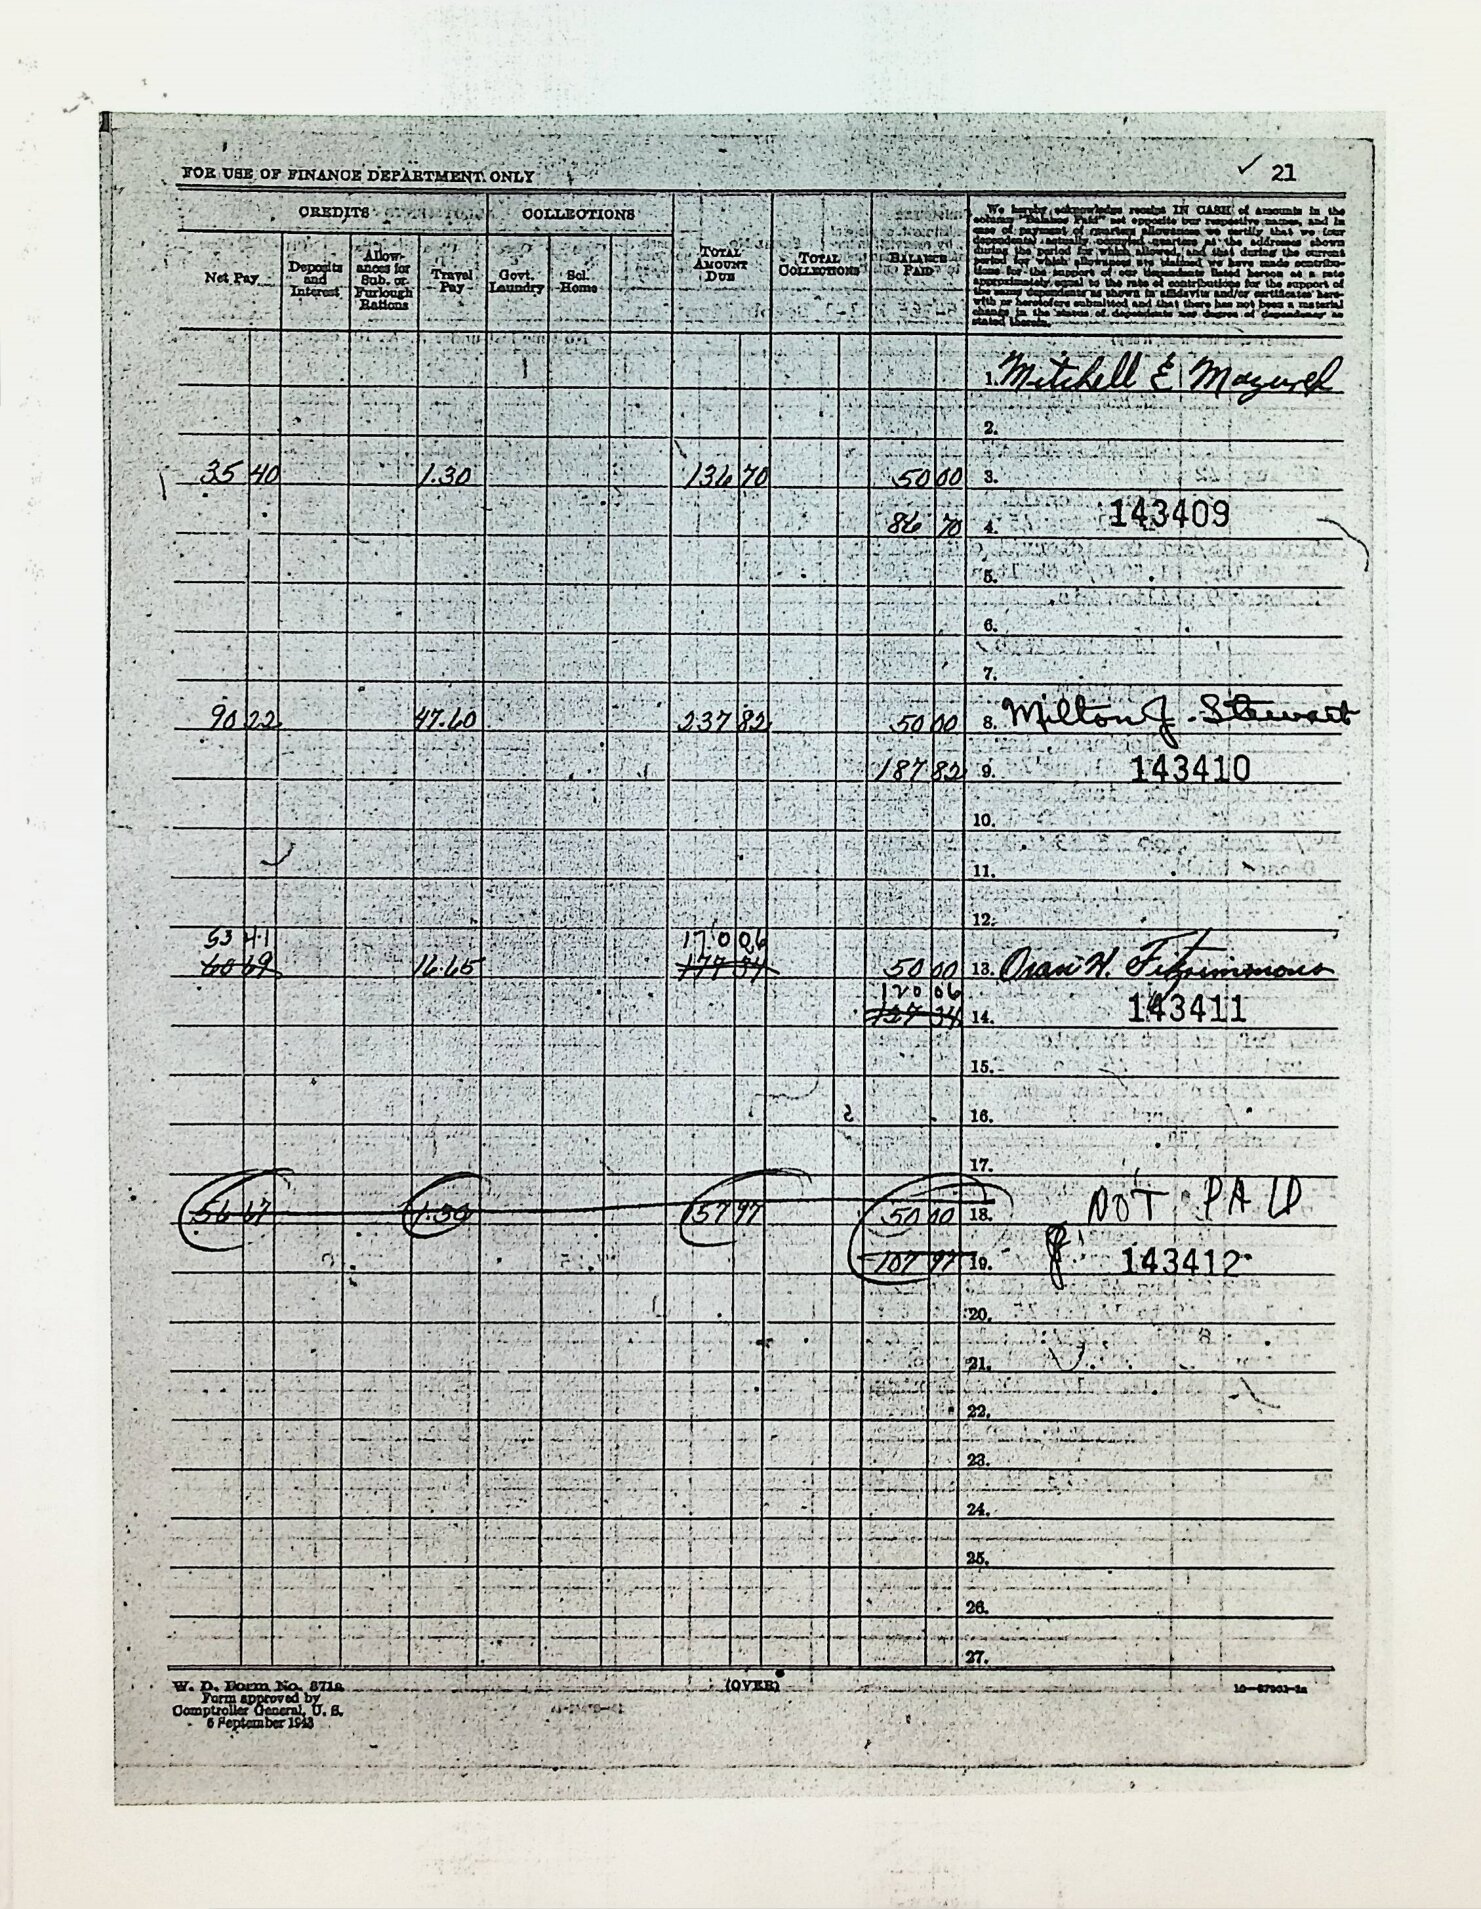 FOR USE OF FINANCE DEPARTMENT ONLY
✓ 21
CREDITS
COLLECTIONS
Net Pay
Deposits and Interest
Allow-
ances for
Sub. or
Furlough
Rations
Travel Pay
Govt. Laundry
Sol. Home
TOTAL AMOUNT DUE
TOTAL COLLECTIONS
BALANCE PAID
We hereby acknowledge receipt IN CASH of amounts in the
column "Balance Paid" set opposite our respective names, and in
case of payment of quarters allowances we certify that we (our
dependents) actually occupied quarters at the addresses shown
during the period for which allowed, and that during the current
period for which allowances are claimed we have made contribu-
tions for the support of our dependents listed hereon at a rate
approximately equal to the rate of contributions for the support of
the same dependents as shown in affidavits and/or certificates here-
with or heretofore submitted and that there has not been a material
change in the status of dependents nor degree of dependency as
stated therein.
1. Mitchell E
2.
35 40 1.30 136 70 50 00 3.
86 70 4. 143409
5.
6.
7.
90 22 47.60 237 82 50 00 8. Milton J. Stewart
187 82 9. 143410
10.
11.
12.
53 41 170 06
60 69 16.65 177 34 50 00 13. Oran W. Fitzsimmons
120 06
127 34 14. 143411
15.
16.
17.
56 67 1.30 57 97 50 00 18. NOT PAID
107 97 19. 143412
20.
21.
22.
23.
24.
25.
26.
27.
W. D. Form No. 371a
Form approved by
Comptroller General, U. S.
6 September 1943
(OVER)